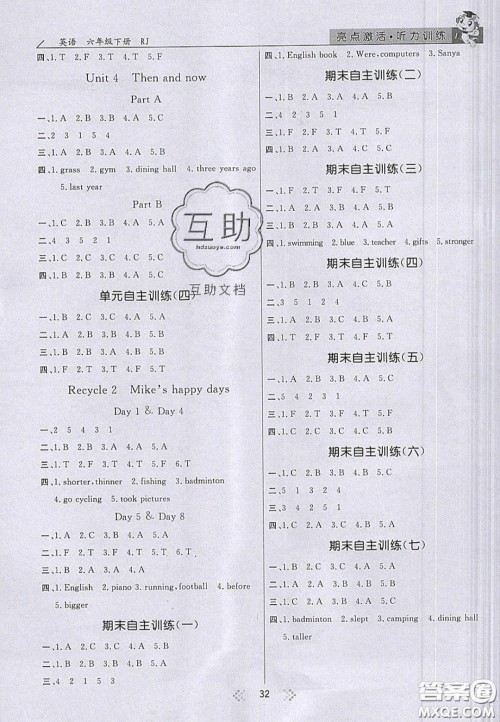 英语 六年级下册 RJ
亮点激活·听力训练
四、1. T 2. F 3. T 4. T 5. F
Unit 4 Then and now
Part A
一、1. C 2. B 3. A 4. A 5. C
二、4 2 3 1 5 4
三、1. B 2. A 3. B 4. A 5. B
四、1. grass 2. gym 3. dining hall 4. three years ago
5. last year
Part B
一、1. C 2. B 3. A 4. B 5. C
二、4 3 5 2 1
三、1. F
四、1. C 2. B
单元自主训练(四)
一、1. A 2. B 3. B
二、1. B 2. A 3. A 4. B 5. B
三、1. B 2. A 3. B 4. B 5. C
四、1. C 2. B 3. A 4. B 5. C
Recycle 2 Mike's happy days
Day 1 & Day 4
一、2 5 4 3 1
二、1. B 2. A 3. B 4. A 5. C
三、1. T 2. F 3. T 4. F 5. F 6. T
四、1. shorter, thinner 2. fishing 3. badminton
4. go cycling 5. took pictures
Day 5 & Day 8
一、1. A 2. B 3. C 4. A 5. C
二、1. F 2. F 3. T 4. T 5. T 6. T
三、1. A 2. B 3. C 4. A 5. C
四、1. English 2. piano 3. running, football 4. before
5. bigger
期末自主训练(一)
一、1. A 2. C 3. B 4. B 5. C
二、4 2 3 5 1
三、1. B 2. A 3. A 4. B 5. A
四、1. English book 2. Were, computers 3. Sanya
期末自主训练(二)
一、1. B 2. A 3. A 4. C 5. B
三、1. B 2. A 3. A 4. B 5. A
四、1. C 2. B 3. A 4. C 5. B
期末自主训练(三)
一、1. B 2. C 3. A 4. B 5. C
二、1. F 2. T 3. F 4. T 5. F
三、1. B 2. A 3. B 4. C 5. A
四、1. swimming 2. blue 3. teacher 4. gifts 5. stronger
期末自主训练(四)
一、1. B 2. A 3. B 4. A 5. B
二、3 5 1 2 4
三、1. F 2. F 3. T 4. F 5. T
四、1. A 2. C 3. B 4. A 5. B
期末自主训练(五)
一、1. A 2. B 3. C 4. B 5. A
三、1. F 2. F 3. F 4. T 5. F
四、1. A 2. C 3. B 4. A 5. B
期末自主训练(六)
一、1. C 2. B 3. C 4. A 5. B
二、5 1 3 2 4
四、1. B 2. C 3. A 4. B 5. C
期末自主训练(七)
一、1. A 2. B 3. A 4. C 5. B
三、1. B 2. A 3. A 4. B 5. A
四、1. badminton 2. slept 3. camping 4. dining hall
5. taller
32
互助
hdzuoye.com
互助文档
答案圈
MXQE.COM